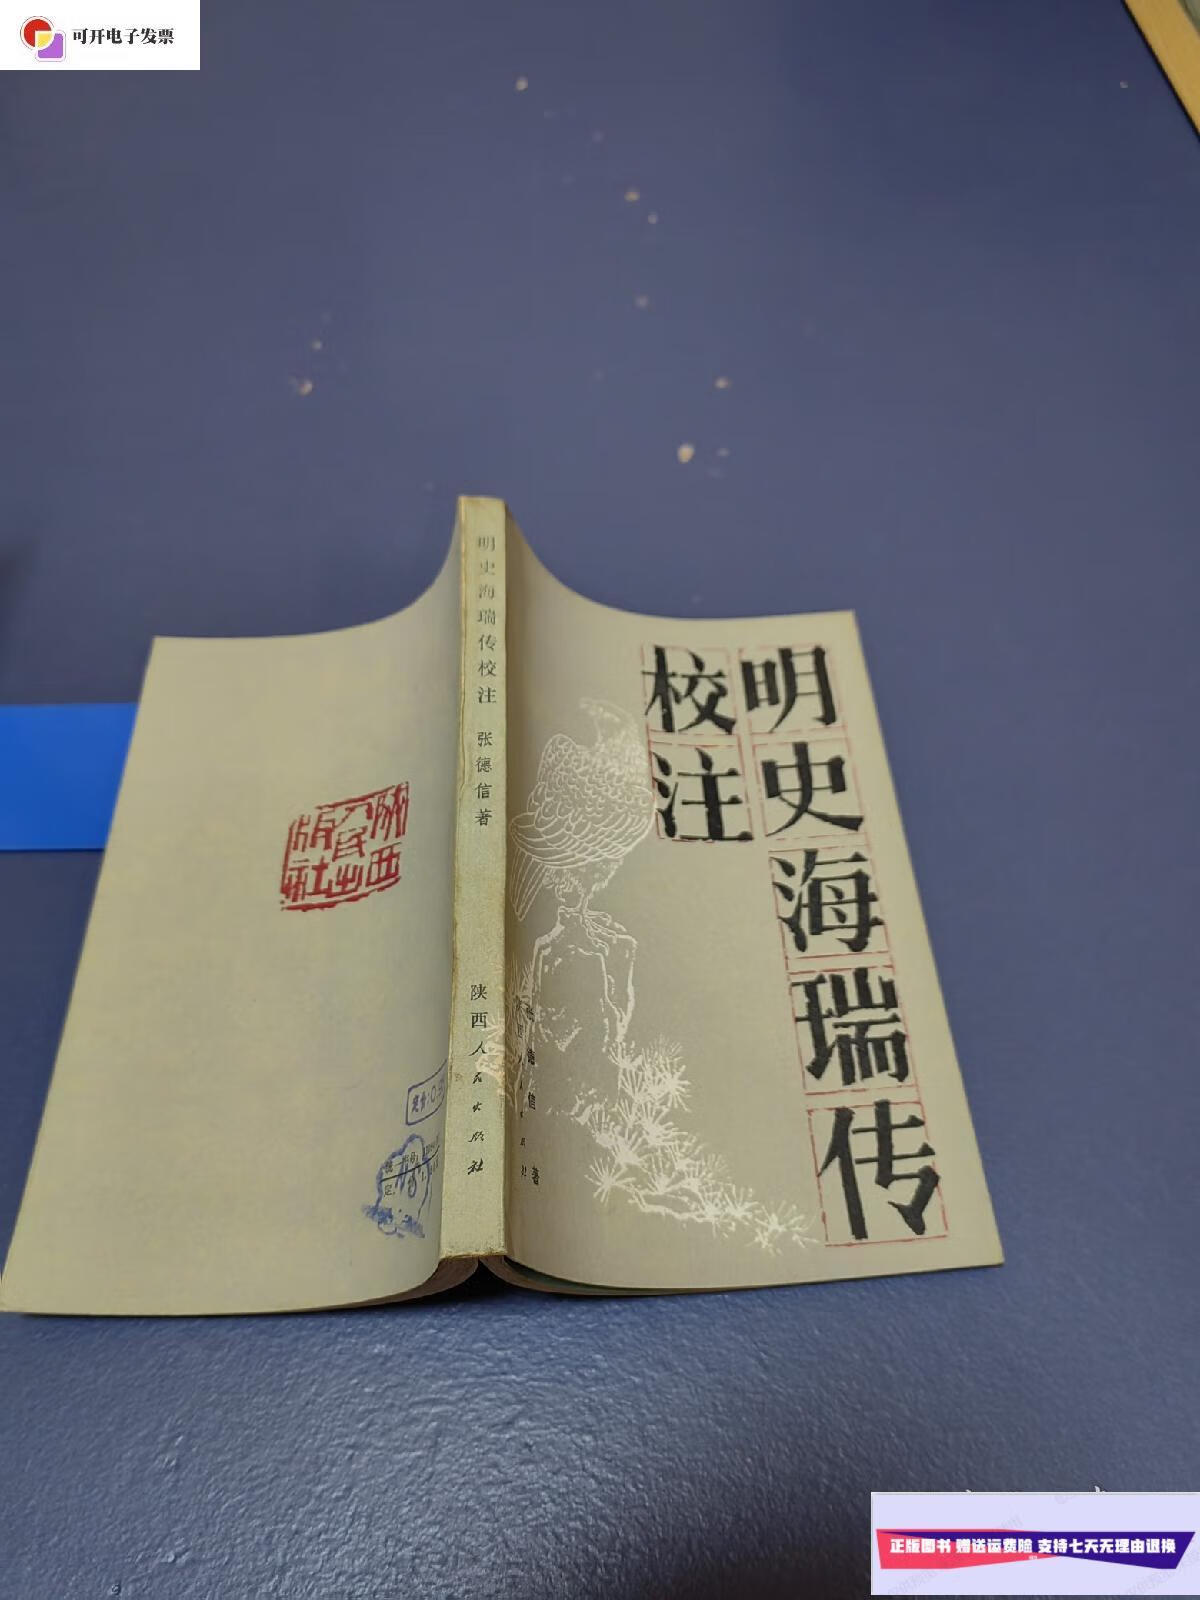 可开电子发票
明史海瑞传
校注
张德信 著
明史海瑞传校注 张德信著
陕西人民出版社
陕西
人民出
版社
正版图书 赠送运费险 支持七天无理由退换